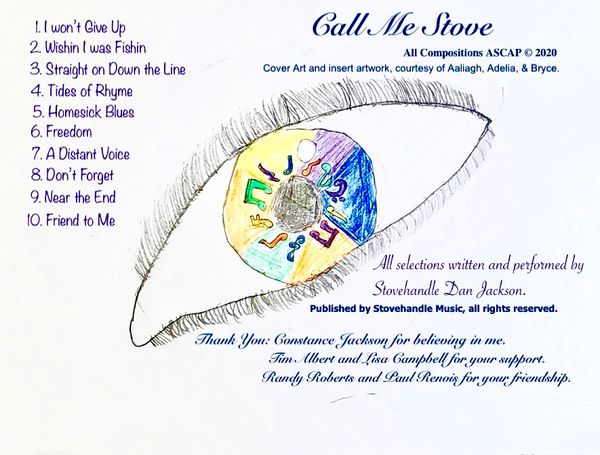 1. I won't Give Up
2. Wishin I was Fishin
3. Straight on Down the Line
4. Tides of Rhyme
5. Homesick Blues
6. Freedom
7. A Distant Voice
8. Don't Forget
9. Near the End
10. Friend to Me
Call Me Stove
All Compositions ASCAP © 2020
Cover Art and insert artwork, courtesy of Aaliagh, Adelia, & Bryce.
All selections written and performed by
Stovehandle Dan Jackson.
Published by Stovehandle Music, all rights reserved.
Thank You: Constance Jackson for believing in me.
Tim Albert and Lisa Campbell for your support.
Randy Roberts and Paul Renois for your friendship.